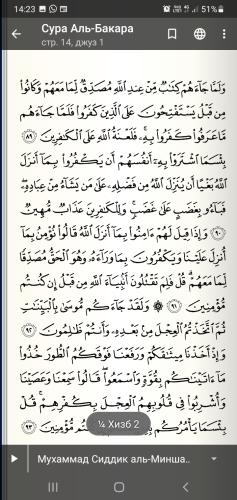 14:23
51%
Сура Аль-Бакара
стр. 14, джуз 1
وَلَمَّا جَآءَهُمْ كِتَٰبٌ مِّنْ عِندِ ٱللَّهِ مُصَدِّقٌ لِّمَا مَعَهُمْ وَكَانُوا۟
مِن قَبْلُ يَسْتَفْتِحُونَ عَلَى ٱلَّذِينَ كَفَرُوا۟ فَلَمَّا جَآءَهُم
مَّا عَرَفُوا۟ كَفَرُوا۟ بِهِۦ ۚ فَلَعْنَةُ ٱللَّهِ عَلَى ٱلْكَٰفِرِينَ ٨٩
بِئْسَمَا ٱشْتَرَوْا۟ بِهِۦٓ أَنفُسَهُمْ أَن يَكْفُرُوا۟ بِمَآ أَنزَلَ
ٱللَّهُ بَغْيًا أَن يُنَزِّلَ ٱللَّهُ مِن فَضْلِهِۦ عَلَىٰ مَن يَشَآءُ مِنْ عِبَادِهِۦ ۖ
فَبَآءُو بِغَضَبٍ عَلَىٰ غَضَبٍ ۚ وَلِلْكَٰفِرِينَ عَذَابٌ مُّهِينٌ
٩٠ وَإِذَا قِيلَ لَهُمْ ءَامِنُوا۟ بِمَآ أَنزَلَ ٱللَّهُ قَالُوا۟ نُؤْمِنُ بِمَآ
أُنزِلَ عَلَيْنَا وَيَكْفُرُونَ بِمَا وَرَآءَهُۥ وَهُوَ ٱلْحَقُّ مُصَدِّقًا
لِّمَا مَعَهُمْ ۗ قُلْ فَلِمَ تَقْتُلُونَ أَنۢبِيَآءَ ٱللَّهِ مِن قَبْلُ إِن كُنتُم
مُّؤْمِنِينَ ٩١ ۞ وَلَقَدْ جَآءَكُم مُّوسَىٰ بِٱلْبَيِّنَٰتِ
ثُمَّ ٱتَّخَذْتُمُ ٱلْعِجْلَ مِنۢ بَعْدِهِۦ وَأَنتُمْ ظَٰلِمُونَ ٩٢
وَإِذْ أَخَذْنَا مِيثَٰقَكُمْ وَرَفَعْنَا فَوْقَكُمُ ٱلطُّورَ خُذُوا۟
مَآ ءَاتَيْنَٰكُم بِقُوَّةٍ وَٱسْمَعُوا۟ ۖ قَالُوا۟ سَمِعْنَا وَعَصَيْنَا
وَأُشْرِبُوا۟ فِى قُلُوبِهِمُ ٱلْعِجْلَ بِكُفْرِهِمْ ۚ قُلْ
بِئْسَمَا يَأْمُرُكُم مُّؤْمِنِينَ ٩٣
¼ Хизб 2
Мухаммад Сиддик аль-Минша..